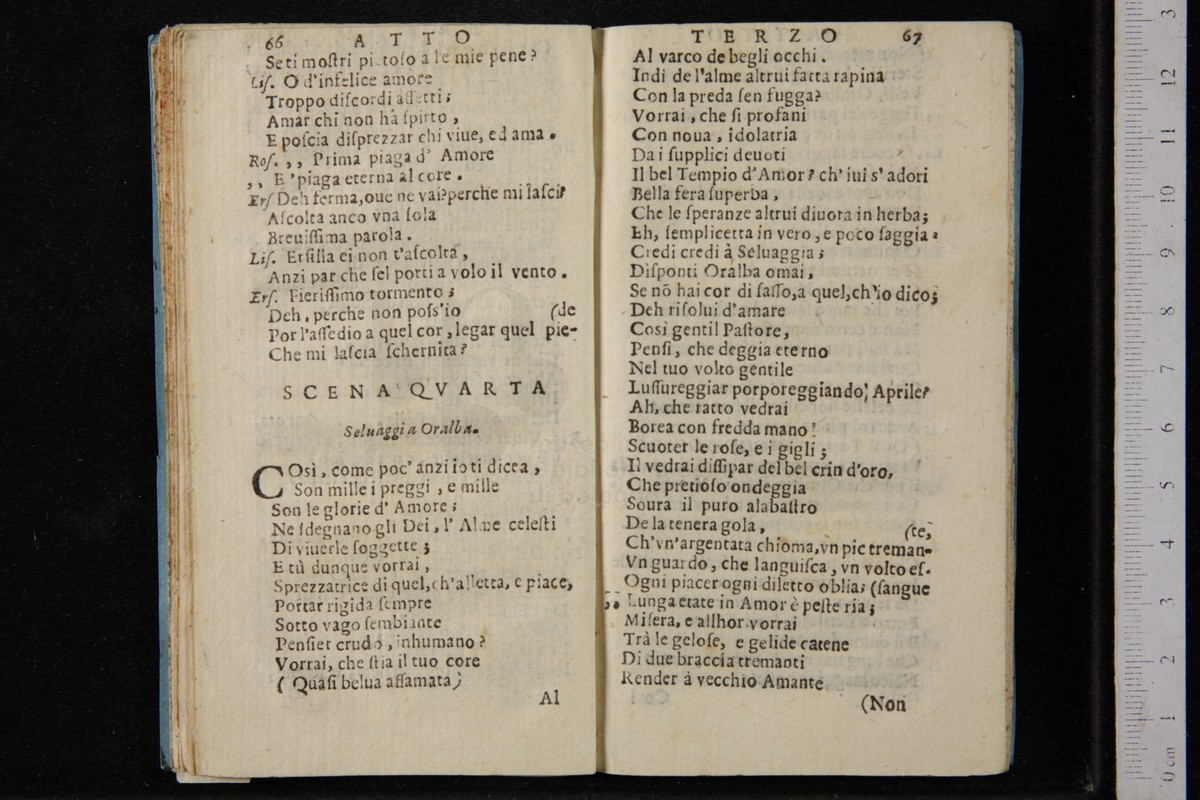 66 ATTO
Se ti moſtri pietoſo a le mie pene?
Liſ. O d'infelice amore
Troppo diſcordi affetti;
Amar chi non hà ſpirto,
E poſcia diſprezzar chi viue, ed ama.
Roſ. ,, Prima piaga d' Amore
,, E 'piaga eterna al core.
Erſ Deh ferma, oue ne vai? perche mi laſci?
Aſcolta anco vna ſola
Breuiſſima parola.
Liſ. Erſilla ei non t'aſcolta,
Anzi par che ſel porti a volo il vento.
Erſ. Fieriſſimo tormento;
Deh, perche non poſs'io (de
Por l'aſſedio a quel cor, legar quel pie-
Che mi laſcia ſchernita?
SCENA QVARTA
Seluaggia Oralba.
COsì, come poc' anzi io ti dicea,
Son mille i preggi, e mille
Son le glorie d' Amore;
Ne ſdegnano gli Dei, l' Alme celeſti
Di viuerle ſoggette;
E tù dunque vorrai,
Sprezzatrice di quel, ch'alletta, e piace,
Portar rigida ſempre
Sotto vago ſembiante
Penſier crudo, inhumano?
Vorrai, che ſtia il tuo core
(Quaſi belua affamata)
Al
TERZO 67
Al varco de begli occhi.
Indi de l'alme altrui fatta rapina
Con la preda ſen fugga?
Vorrai, che ſi profani
Con noua, idolatria
Da i ſupplici deuoti
Il bel Tempio d'Amor? ch' iui s' adori
Bella fera ſuperba,
Che le ſperanze altrui diuora in herba;
Eh, ſemplicetta in vero, e poco ſaggia.
Credi credi à Seluaggia;
Diſponti Oralba omai,
Se nō hai cor di ſaſſo, a quel, ch'io dico;
Deh riſolui d'amare
Così gentil Paſtore,
Penſi, che deggia eterno
Nel tuo volto gentile
Luſſureggiar porporeggiando, Aprile?
Ah, che ratto vedrai
Borea con fredda mano!
Scuoter le roſe, e i gigli;
Il vedrai diſſipar del bel crin d'oro,
Che pretioſo ondeggia
Soura il puro alabaſtro
De la tenera gola, (te,
Ch'vn'argentata chioma, vn pie treman-
Vn guardo, che languiſca, vn volto eſ-
Ogni piacer ogni diletto oblia; (ſangue
,, Lunga etate in Amor è peſte ria;
Miſera, e allhor vorrai
Trà le geloſe, e gelide catene
Di due braccia tremanti
Render à vecchio Amante
(Non